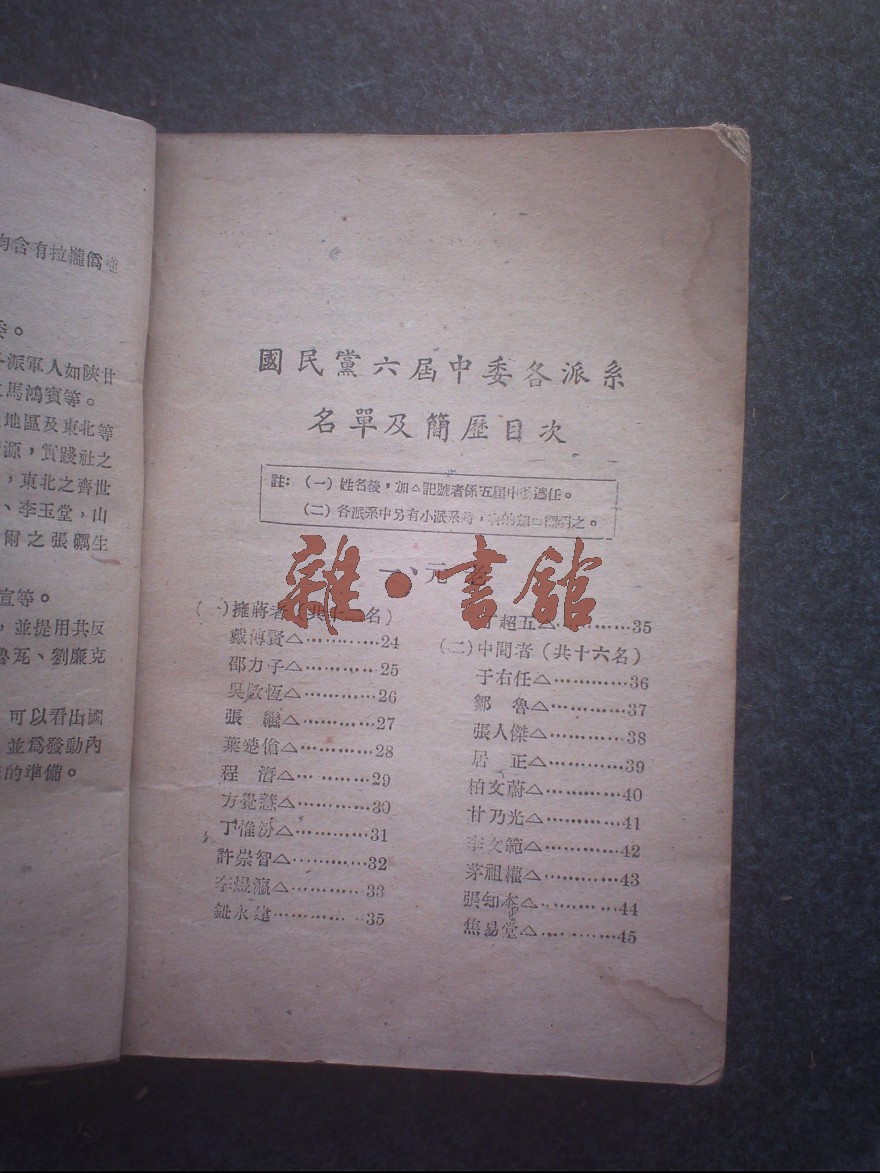 均含有拉攏偽
委。
各派軍人如陝甘
馬鴻賓等。
地區及東北等
源，實踐社之
，東北之齊世
、李玉堂，山
爾之張礪生
宣等。
，並提用其反
魯芃、劉廉克
可以看出國
並為發動內
的準備。
國民黨六屆中委各派系
名單及簡歷目次
註：（一）姓名後，加△記號者係五屆中委連任。
（二）各派系中另有小派系時，
雜·書館
一、元老
（一）擁蔣者（共十二名）
戴傳賢△…………24
邵力子△…………25
吳敬恆△…………26
張　繼△…………27
葉楚傖△…………28
程　潛△…………29
方覺慧△…………30
丁惟汾△…………31
許崇智△…………32
李煜瀛△…………33
鈕永建…………35
丁超五△…………35
（二）中間者（共十六名）
于右任△…………36
鄒　魯△…………37
張人傑△…………38
居　正△…………39
柏文蔚△…………40
甘乃光△…………41
李文範△…………42
茅祖權△…………43
張知本△…………44
焦易堂△…………45